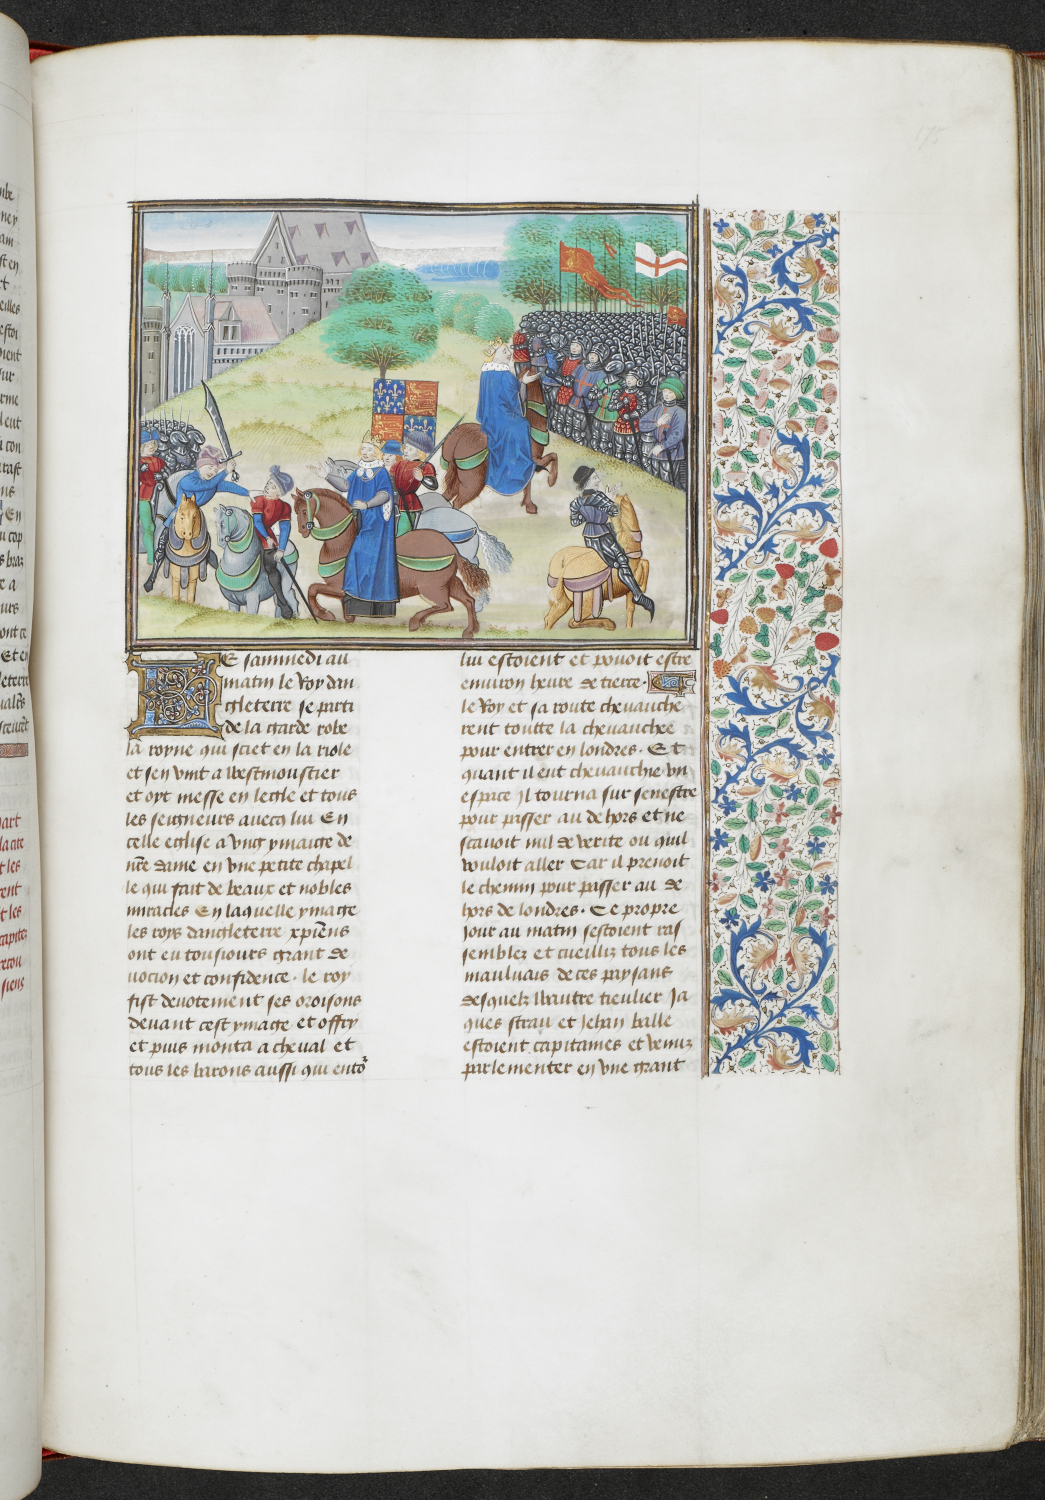 175
Le sammedi au
matin le Roy dan
gleterre se parti
de la garde robe
la royne qui sciet en la riole
et sen vint a westmoustier
et oyt messe en legle et tous
les seigneurs avecq lui En
celle eglise a vng ymaige de
nre dame en vne petite chapel
le qui fait de beaux et nobles
miracles En laquelle ymaige
les roys dangleterre xpiens
ont eu tousiours grant de
uocion et confidence · le roy
fist deuotement ses oroisons
deuant cest ymaige et offry
et puis monta a cheval et
tous les barons aussi qui ento
lui estoient et pouoit estre
environ heure de tierce ·
le Roy et sa route chevauche
rent toutte la chevauchee
pour entrer en londres · Et
quant il eut chevauchie vn
espace Il tourna sur senestre
pour passer au dehors et ne
scauoit nul de verite ou quil
vouloit aller Car il prenoit
le chemin pour passer au de
hors de londres · Ce propre
Jour au matin sestoient ras
semblez et cueilliz tous les
mauluais de ces paysans
desquelz wautre tieulier Ja
ques strau et Jehan balle
estoient capitaines et venuz
parlementer en vne grant